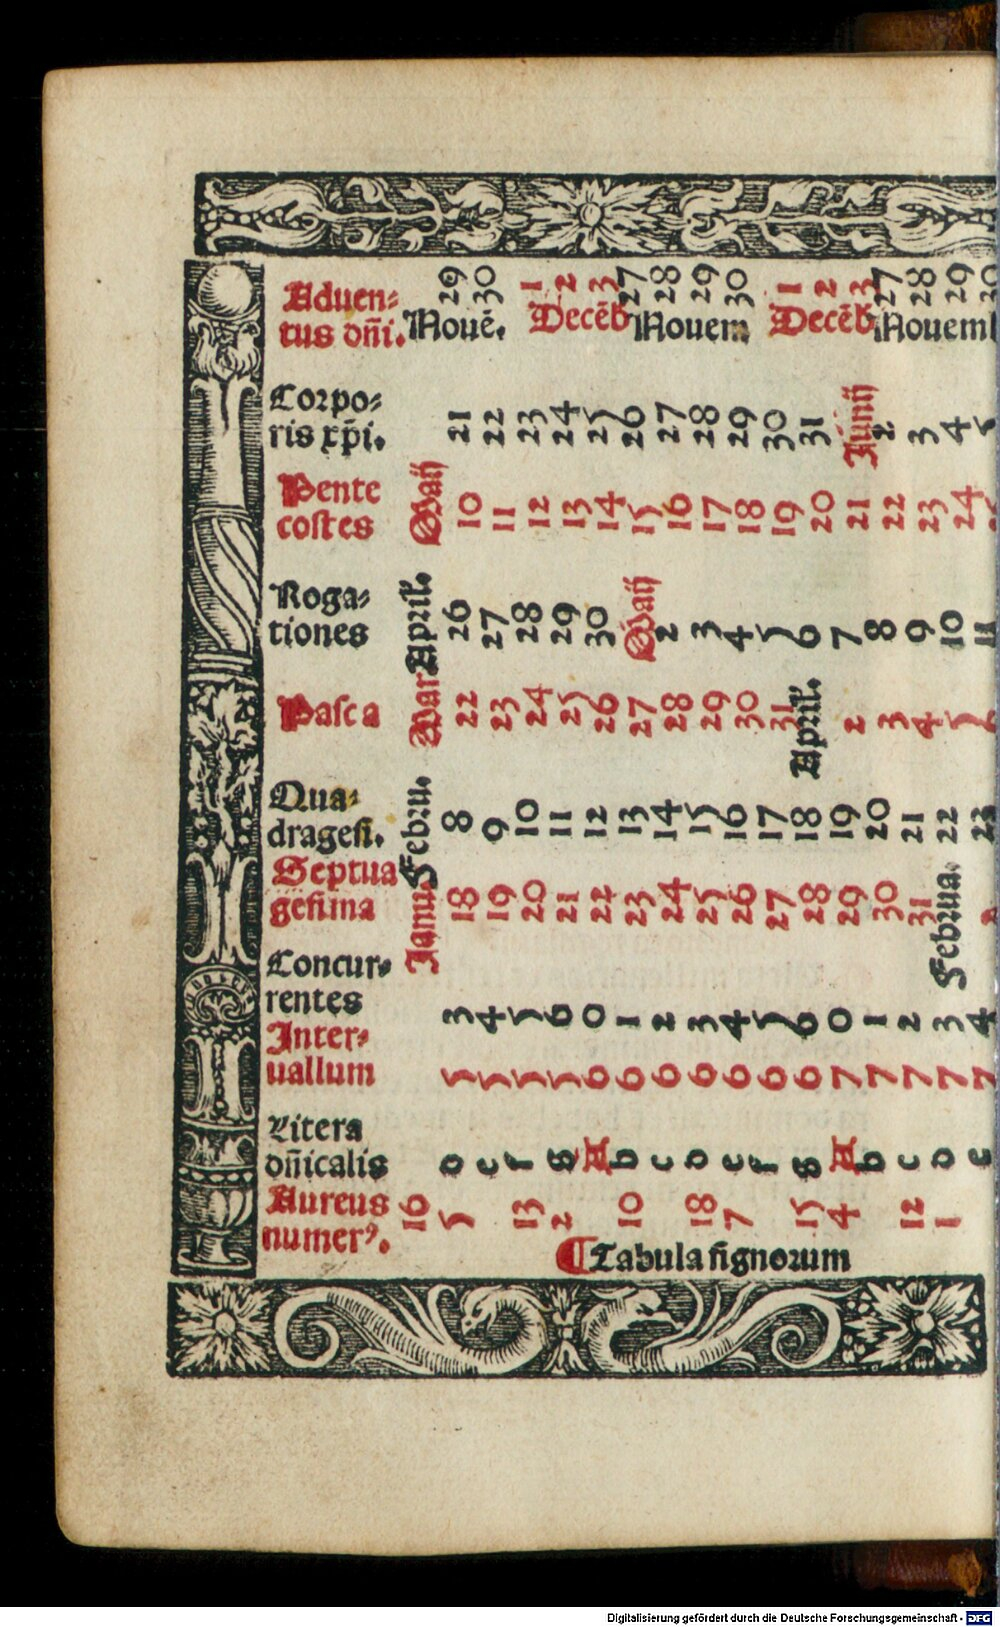 Aduen-
tus dñi.
Nouē. 29 30 Decēb 1 2 3 Nouem 27 28 29 30 Decēb 1 2 3 Nouemb 27 28 29 30
Corpo-
ris xp̄i.
21 22 23 24 25 26 27 28 29 30 31 Iunij 2 3 4 5
Pente
costes
Maij 10 11 12 13 14 15 16 17 18 19 20 21 22 23 24
Roga-
tiones
April. 26 27 28 29 30 Maij 2 3 4 5 6 7 8 9 10 11
Pasca
Mar 22 23 24 25 26 27 28 29 30 31 April. 2 3 4 5 6
Qua-
dragesi.
Febru. 8 9 10 11 12 13 14 15 16 17 18 19 20 21 22 23
Septua
gesima
Ianu. 18 19 20 21 22 23 24 25 26 27 28 29 30 31 Februa. 2
Concur-
rentes
3 4 5 6 0 1 2 3 4 5 6 0 1 2 3 4
Inter-
uallum
5 5 5 5 6 6 6 6 6 6 6 7 7 7 7 7
Litera
dñicalis
d e f g A b c d e f g A b c d e
Aureus
numerꝰ.
16 5 13 2 10 18 7 15 4 12 1
¶Tabula signorum
Digitalisierung gefördert durch die Deutsche Forschungsgemeinschaft - DFG